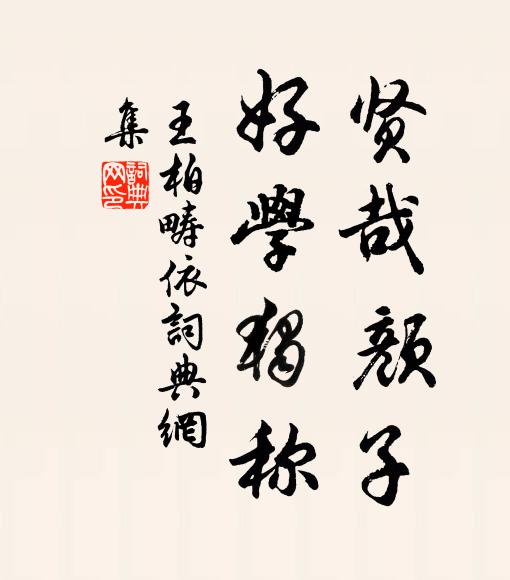 贤哉颜子
好學獨称
王柏畴依詞典網
集
詞典网印